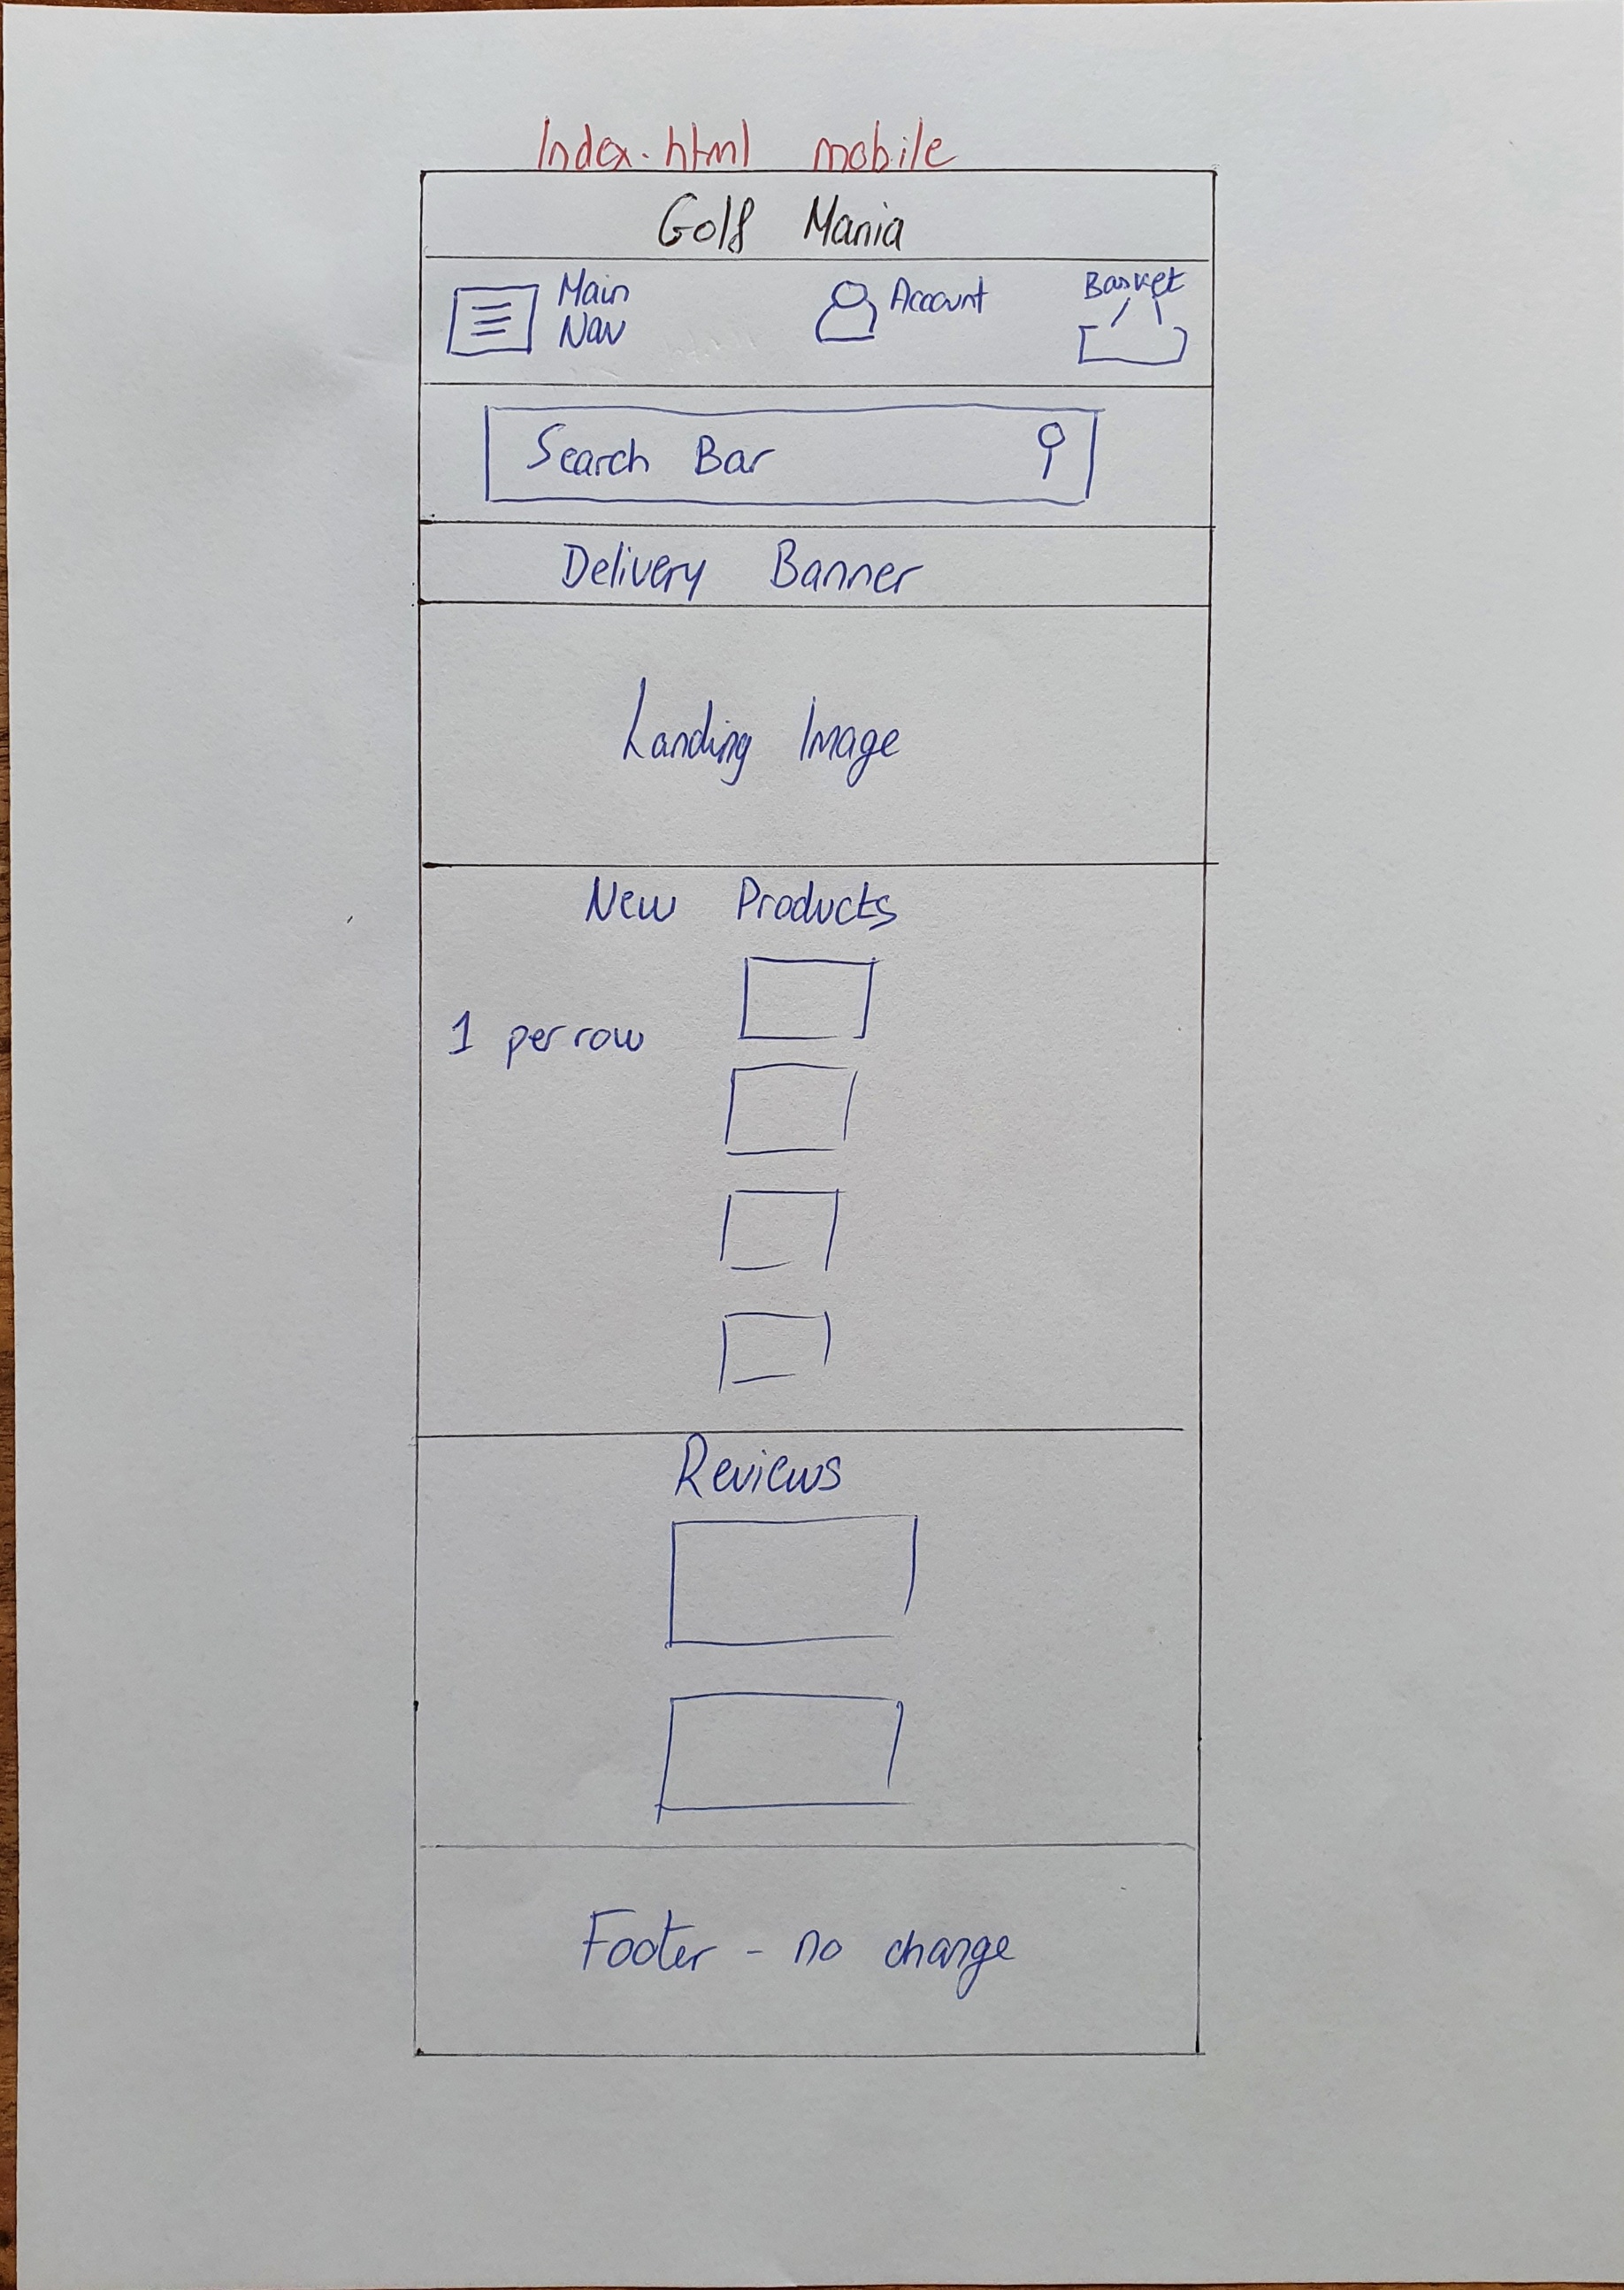 Index.html mobile
Golf Mania
Main
Nav
Account
Basket
Search Bar
Delivery Banner
Landing Image
New Products
1 per row
Reviews
Footer - no change